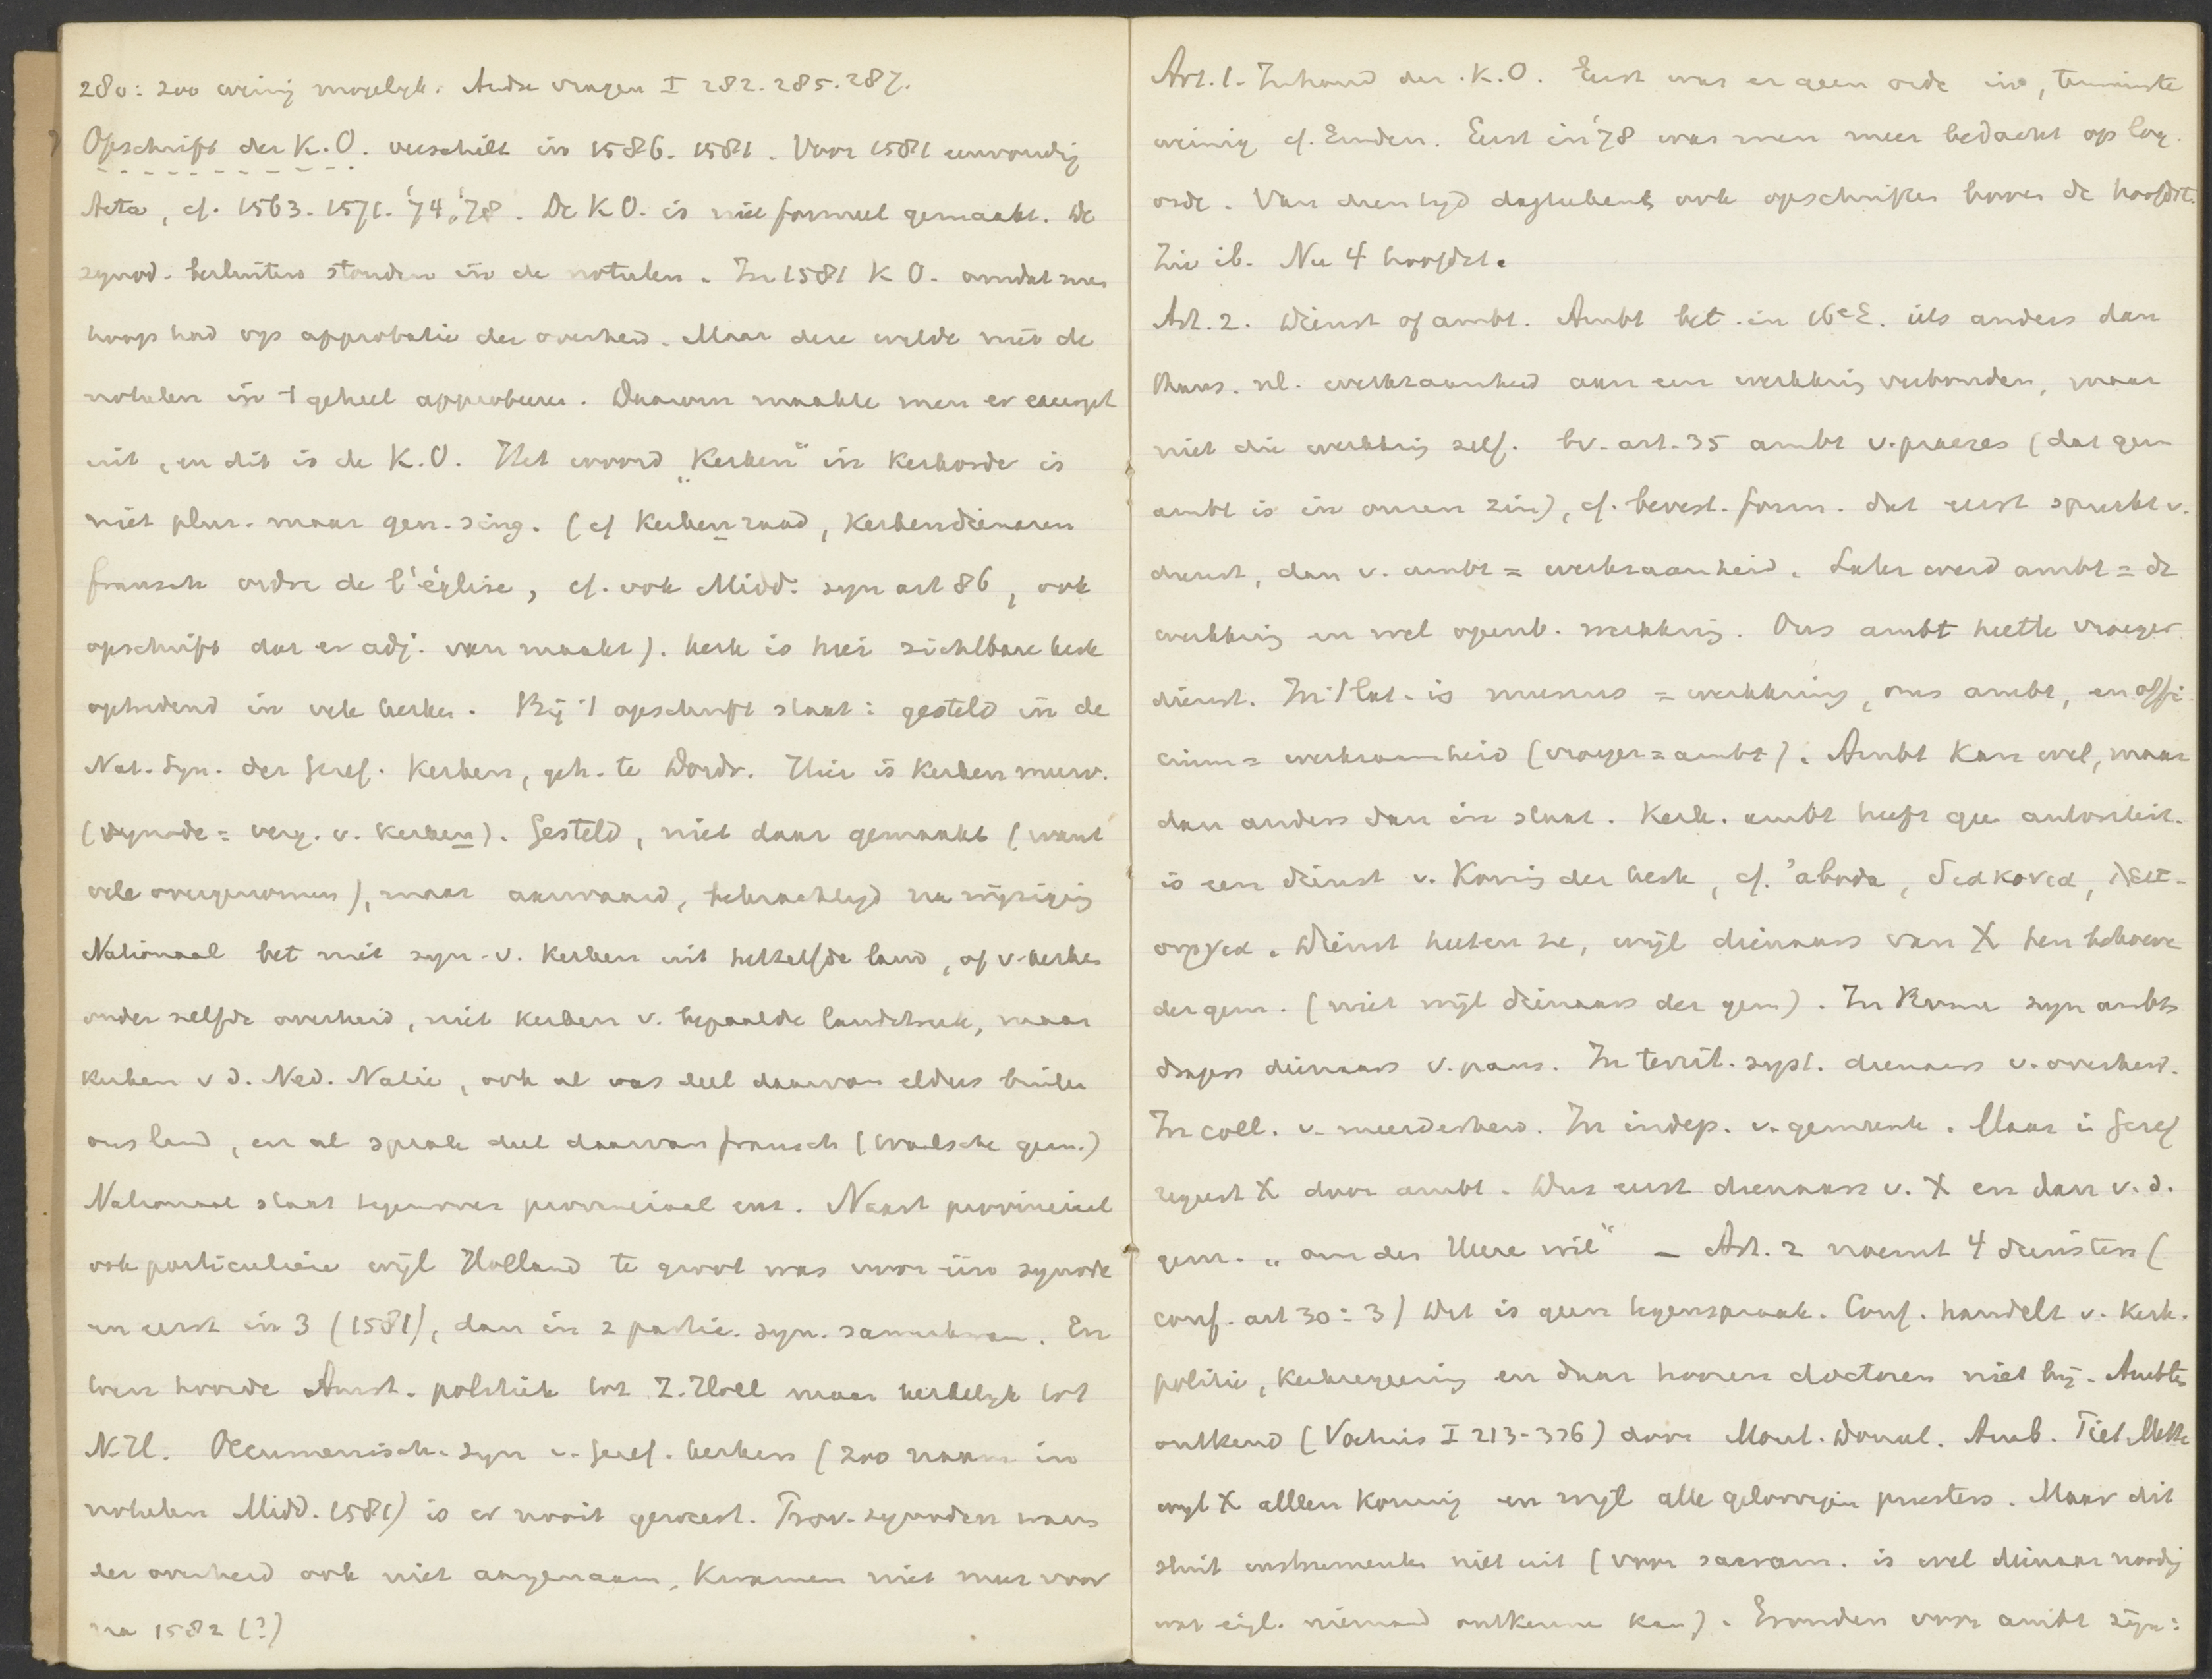 280: zoo weinig mogelijk. Andre vragen I 282. 285. 287.
Opschrift der K.O. verschilt in 1586. 1581. Voor 1581 eenvoudig
Acta, cf. 1563. 1571. '74. '78. De K O. is niet formeel gemaakt. De
synod. besluiten stonden in de notulen. In 1581 K O. omdat men
hoop had op approbatie der overheid. Maar deze wilde niet de
notulen in 't geheel approbeeren. Daarom maakte men er excerpt
uit, en dit is de K.O. Het woord „Kerken" in Kerkorde is
niet plur. maar gen. sing. (cf Kerkenraad, Kerkendienaren
fransch ordre de l'église, cf. ook Midd. syn art 86, ook
opschrift dat er adj. van maakt). Kerk is hier zichtbare kerk
optredend in vele kerken. Bij 't opschrift staat: gesteld in de
Nat. Syn. der Geref. Kerken, geh. te Dordr. Hier is Kerken meerv.
(Synode = verg. v. Kerken). Gesteld, niet daar gemaakt (want
vele overgenomen), maar aanvaard, bekrachtigd na wijziging
Nationaal bet niet syn. v. Kerken uit hetzelfde land, of v. kerken
onder zelfde overheid, niet kerken v. bepaalde landstreek, maar
kerken v d. Ned. Natie, ook al was deel daarvan elders buiten
ons land, en al sprak deel daarvan fransch (Waalsche gem.)
Nationaal staat tegenover provinciaal enz. Naast provinciaal
ook particuliere wijl Holland te groot was voor één synode
en eerst in 3 (1581), dan in 2 partic. syn. samenkwam. En
toen hoorde Amst. politiek tot Z. Holl maar kerkelijk tot
N.H. Oecumenisch. syn v. Geref. kerken (zoo naam in
notulen Midd. 1581) is er nooit geweest. Prov. synoden waren
der overheid ook niet aangenaam. Kwamen niet meer voor
na 1582 (?)
Art. 1. Inhoud der K.O. Eerst was er geen orde in, tenminste
weinig cf. Emden. Eerst in '78 was men meer bedacht op log.
orde. Van dien tijd dagteekent ook opschriften boven de hoofdst.
Zie ib. Nu 4 hoofdst.
Art. 2. Dienst of ambt. Ambt bet. in 16e E. iets anders dan
thans. nl. werkzaamheid aan een werkkring verbonden, maar
niet die werkkring zelf. bv. art. 35 ambt v. praeses (dat geen
ambt is in onzen zin), cf. bevest. form. dat eerst spreekt v.
dienst, dan v. ambt = werkzaamheid. Later werd ambt = de
werkkring en wel openb. werkkring. Ons ambt heette vroeger
dienst. In 't Lat. is munus = werkkring, ons ambt, en offi-
cium = werkzaamheid (vroeger = ambt). Ambt kan wel, maar
dan anders dan in staat. Kerk. ambt heeft gee autoriteit.
is een dienst v. Koning der kerk, cf. 'aboda, διακονία, λειτ-
ουργία. Dienst heeten ze, wijl dienaars van X ten behoeve
der gem. (niet wijl dienaars der gem). In Rome zijn ambts
dragers dienaars v. paus. In territ. syst. dienaers v. overheid.
In coll. v. meerderheid. In indep. v. gemeente. Maar in Geref
regeert X door ambt. Dus eerst dienaars v. X en dan v. d.
gem. „om des Heere wil" – Art. 2 noemt 4 diensten (
conf. art 30: 3) Dit is geen tegenspraak. Conf. handelt v. Kerk.
politie, Kerkregeering en daar hooren doctoren niet bij. Ambten
ontkend (Voetius I 213-336) door Mont. Donat. Anab. Meth.
wijl X alleen Koning en wijl alle geloovigen priesters. Maar dit
sluit instrumenten niet uit (voor sacram. is wel dienaar noodig
wat eigl. niemand ontkenne kan). Gronden voor ambt zijn: